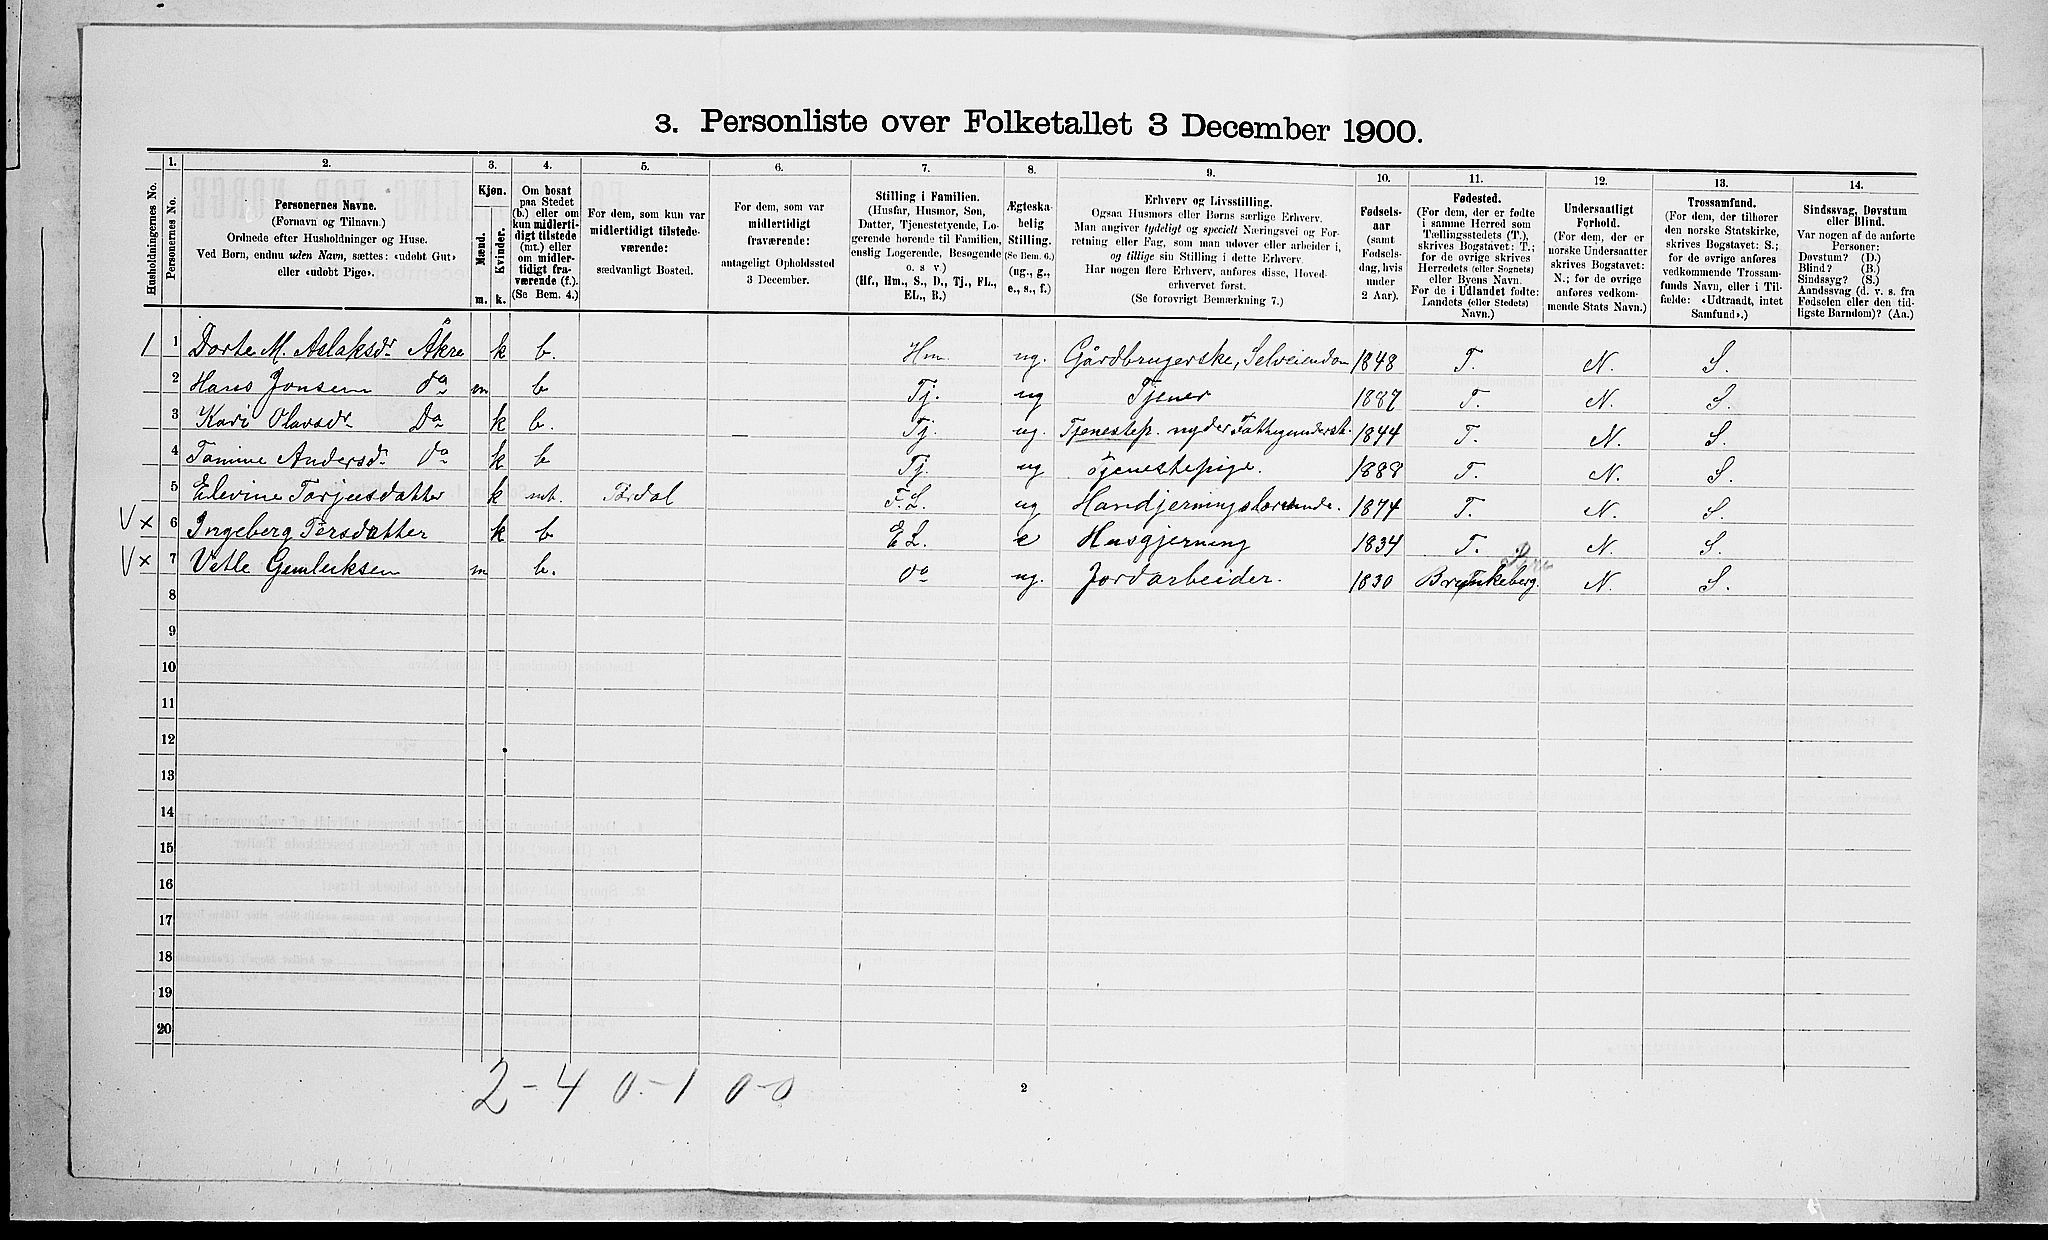 3. Personliste over Folketallet 3 December 1900.
1. 2. 3. 4. 5. 6. 7. 8. 9. 10. 11. 12. 13. 14.
Husholdningernes No.
Personernes No.
Personernes Navne.
(Fornavn og Tilnavn.)
Ordnede efter Husholdninger og Huse.
Ved Børn, endnu uden Navn, sættes: «udøbt Gut»
eller «udøbt Pige».
Kjøn.
Mænd.
Kvinder.
m. k.
Om bosat
paa Stedet
(b.) eller om
kun midlerti-
digt tilstede
(mt.) eller
om midler-
tidigt fra-
værende (f.).
(Se Bem. 4.)
For dem, som kun var
midlertidigt tilstede-
værende:
sædvanligt Bosted.
For dem, som var
midlertidigt
fraværende:
antageligt Opholdssted
3 December.
Stilling i Familien.
(Husfar, Husmor, Søn,
Datter, Tjenestetyende, Lo-
gerende hørende til Familien,
enslig Logerende, Besøgende
o. s. v.)
(Hf., Hm., S., D., Tj., FL.,
EL., B.)
Ægteska-
belig
Stilling.
(Se Bem. 6.)
(ug., g.,
e., s., f.)
Erhverv og Livsstilling.
Ogsaa Husmors eller Børns særlige Erhverv.
Man angiver tydeligt og specielt Næringsvei og For-
retning eller Fag, som man udøver eller arbeider i,
og tillige sin Stilling i dette Erhverv.
Har nogen flere Erhverv, anføres disse, Hoved-
erhvervet først.
(Se forøvrigt Bemærkning 7.)
Fødsels-
aar
(samt
Fødsels-
dag, hvis
under
2 Aar).
Fødested.
(For dem, der er fødte
i samme Herred som
Tællingsstedets (T.),
skrives Bogstavet: T.;
for de øvrige skrives
Herredets (eller Sognets)
eller Byens Navn.
For de i Udlandet fødte:
Landets (eller Stedets)
Navn.)
Undersaatligt
Forhold.
(For dem, der er
norske Undersaatter
skrives Bogstavet:
N.; for de øvrige
anføres vedkom-
mende Stats Navn.)
Trossamfund.
(For dem, der tilhører
den norske Statskirke,
skrives Bogstavet: S.;
for de øvrige anføres
vedkommende Trossam-
funds Navn, eller i Til-
fælde: «Udtraadt, intet
Samfund».)
Sindssvag, Døvstum
eller Blind.
Var nogen af de anførte
Personer:
Døvstum? (D.)
Blind? (B.)
Sindssyg? (S.)
Aandssvag (d. v. s. fra
Fødselen eller den tid-
ligste Barndom)? (Aa.)
1 1 Dorte M. Aslaksdr Åkre k b. Hm. ug. Gårdbrugerske, Selveiendom 1848 T. N. S.
2 Hans Jonsen do m b Tj. ug Tjener 1887 T. N. S.
3 Kari Olavsdr Do k b. Tj. ug. Tjenestep. nyder Fattigunderst. 1844 T. N. S.
4 Tomine Andersdr do k b Tj. ug Tjenestepige. 1888 T. N. S.
5 Elevine Torjusdatter k mt. Tørdal F.L. ug Handjerningslærerinde. 1874 T. N. S.
V x 6 Ingeberg Persdatter k b E L. e Husgjerning 1834 T. N. S.
V x 7 Vetle Gemleiksen m b. do ug. Jordarbeider. 1830 Brunkeberg. N. S.
8
9
10
11
12
13
14
15
16
17
18
19
20
2 - 4 0 - 1 0 - 0
2